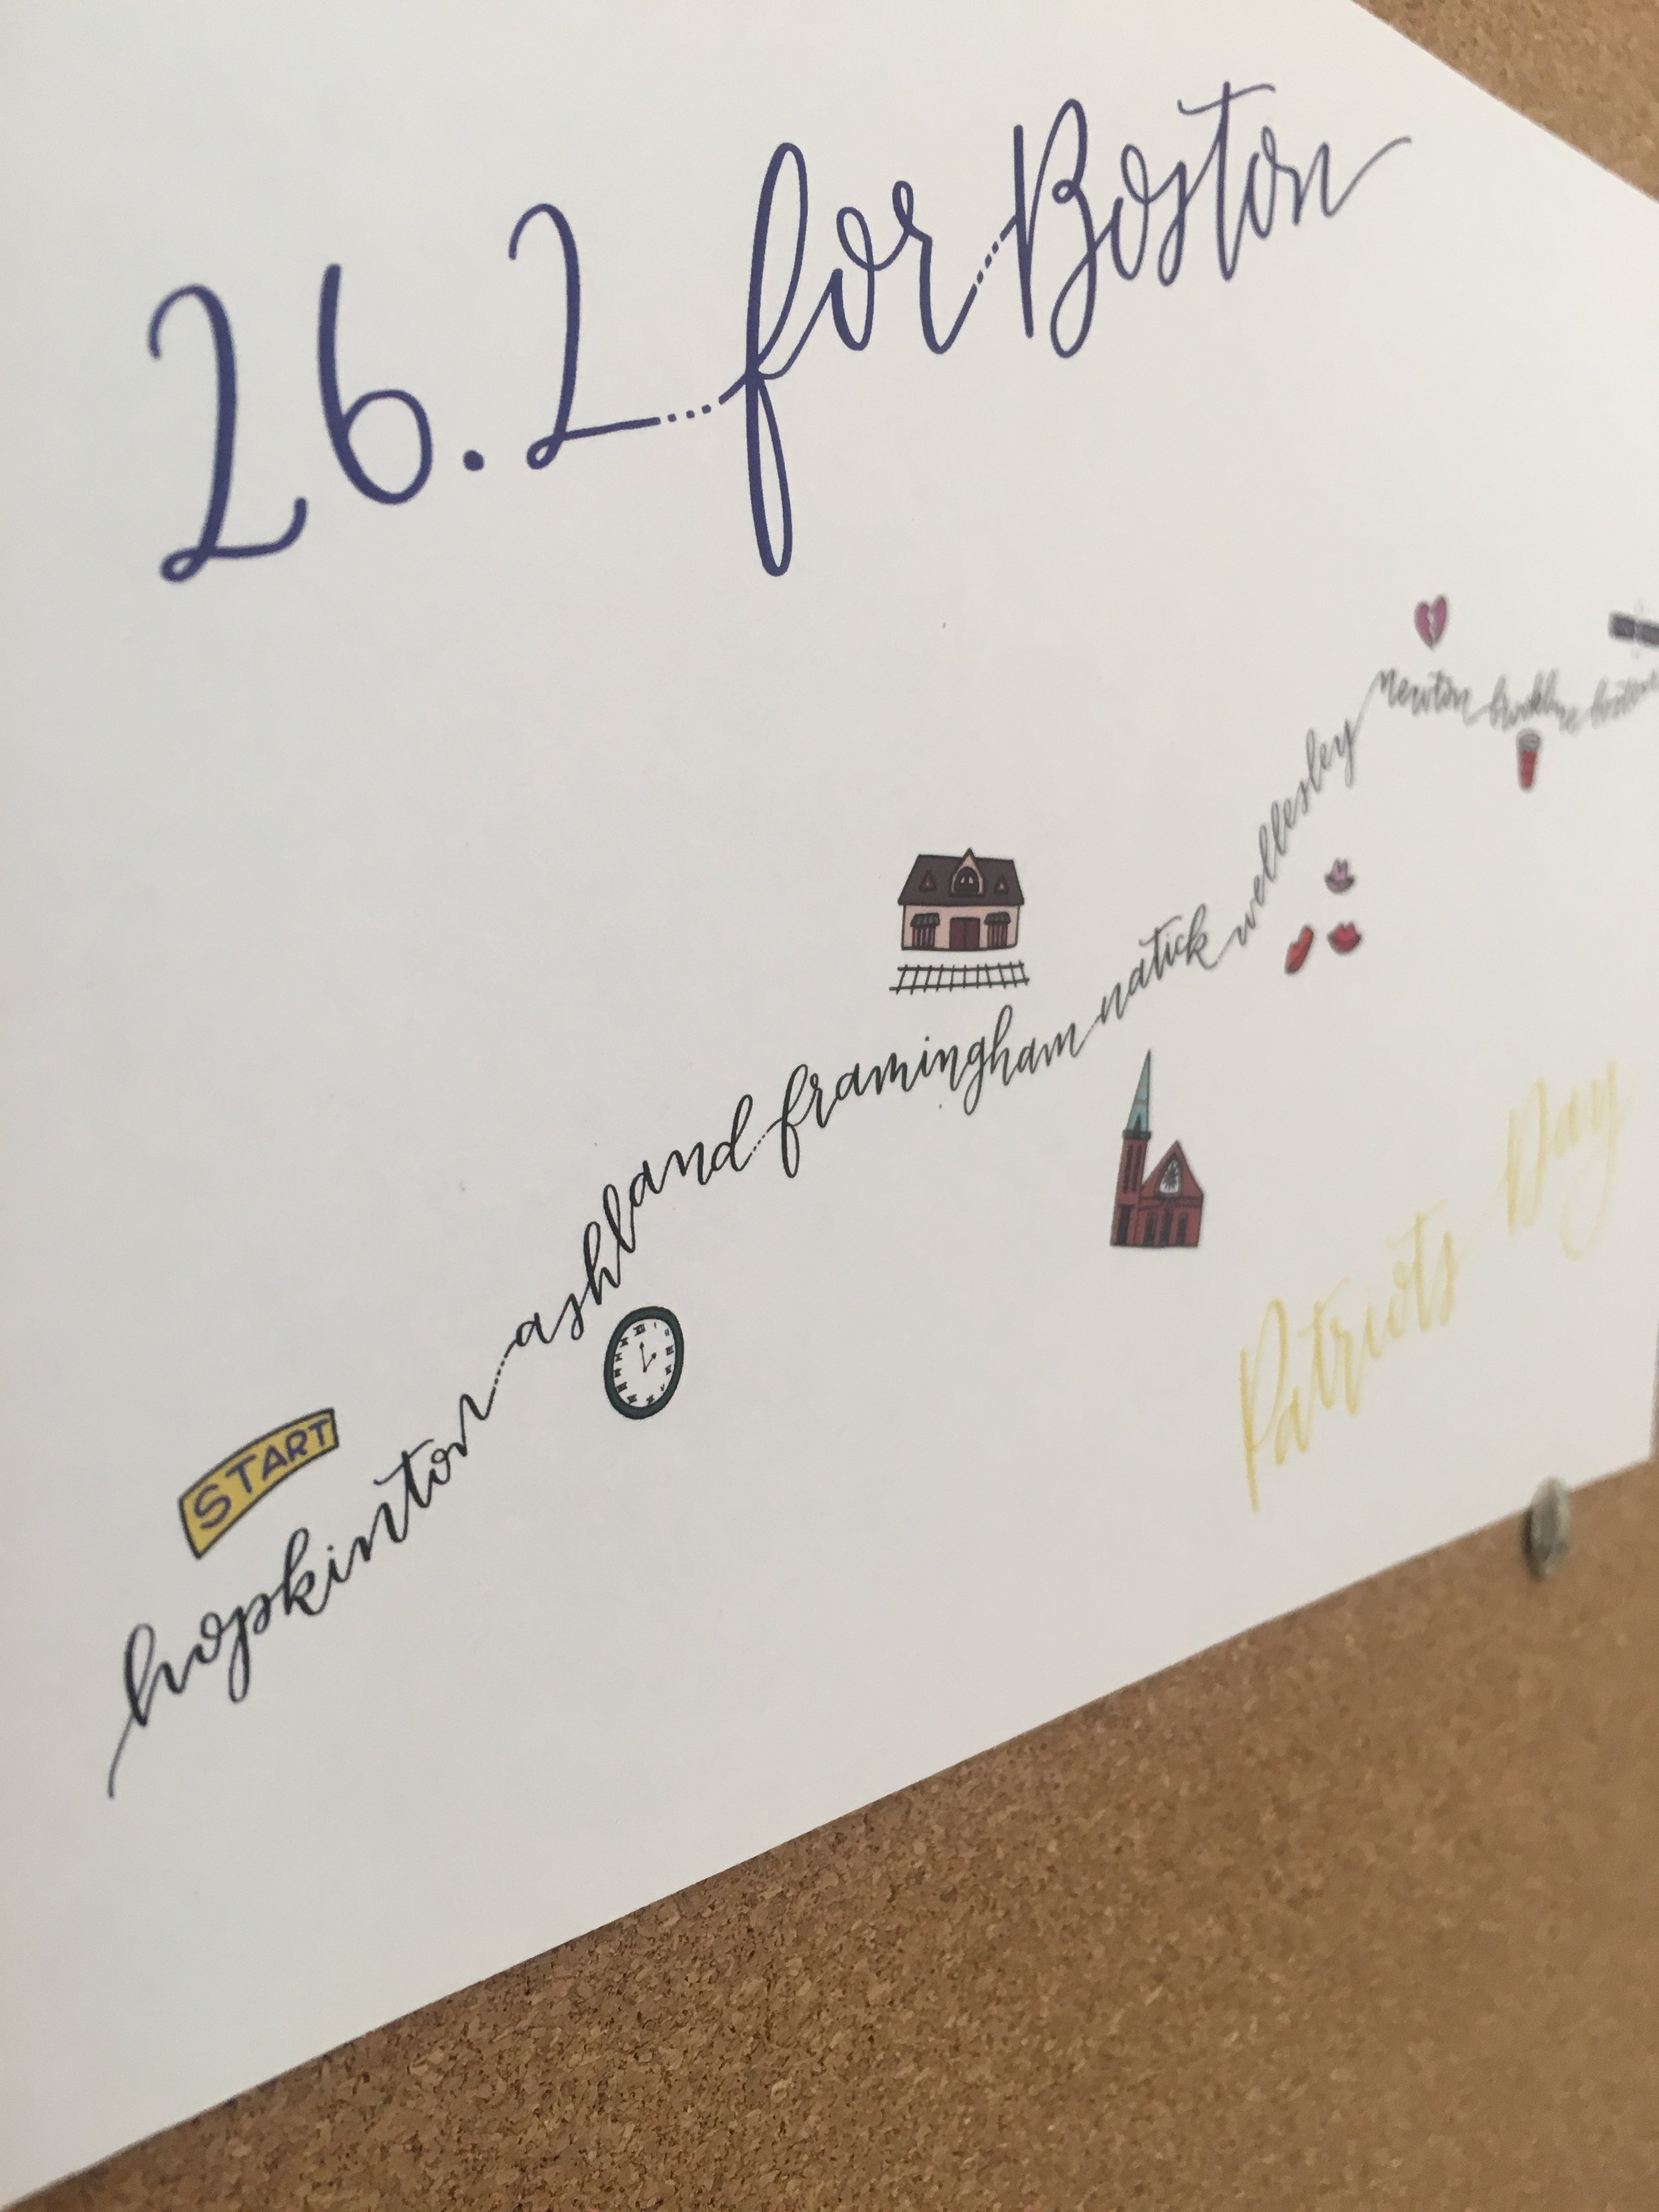 26.2 for Boston
START
hopkinton ashland framingham natick wellesley newton brookline boston
Patriots Day